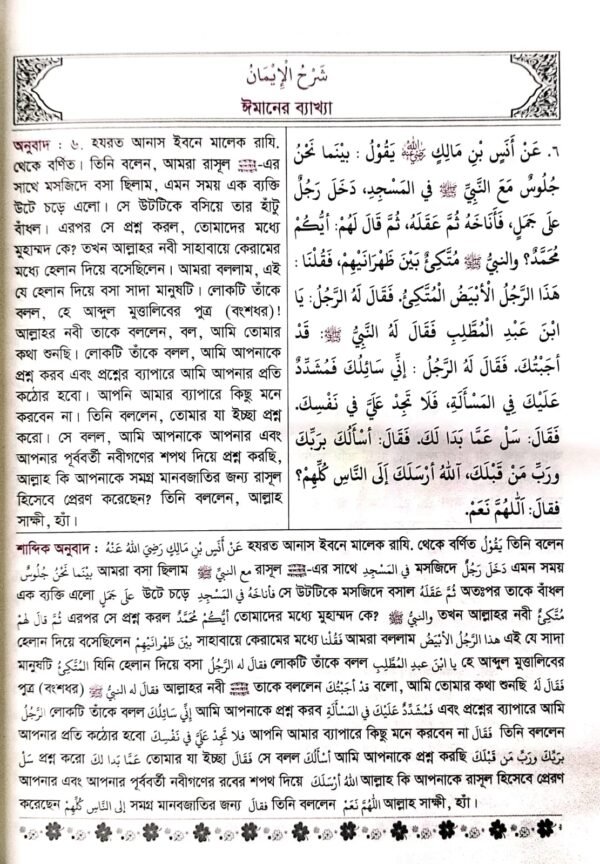 شَرْحُ الْإِيْمَانُ
ঈমানের ব্যাখ্যা
অনুবাদ : ৬. হযরত আনাস ইবনে মালেক রাযি.
থেকে বর্ণিত। তিনি বলেন, আমরা রাসূল ﷺ-এর
সাথে মসজিদে বসা ছিলাম, এমন সময় এক ব্যক্তি
উটে চড়ে এলো। সে উটটিকে বসিয়ে তার হাঁটু
বাঁধল। এরপর সে প্রশ্ন করল, তোমাদের মধ্যে
মুহাম্মদ কে? তখন আল্লাহর নবী সাহাবায়ে কেরামের
মধ্যে হেলান দিয়ে বসেছিলেন। আমরা বললাম, এই
যে হেলান দিয়ে বসা সাদা মানুষটি। লোকটি তাঁকে
বলল, হে আব্দুল মুত্তালিবের পুত্র (বংশধর)!
আল্লাহর নবী তাকে বললেন, বল, আমি তোমার
কথা শুনছি। লোকটি তাঁকে বলল, আমি আপনাকে
প্রশ্ন করব এবং প্রশ্নের ব্যাপারে আমি আপনার প্রতি
কঠোর হবো। আপনি আমার ব্যাপারে কিছু মনে
করবেন না। তিনি বললেন, তোমার যা ইচ্ছা প্রশ্ন
করো। সে বলল, আমি আপনাকে আপনার এবং
আপনার পূর্ববর্তী নবীগণের শপথ দিয়ে প্রশ্ন করছি,
আল্লাহ কি আপনাকে সমগ্র মানবজাতির জন্য রাসূল
হিসেবে প্রেরণ করেছেন? তিনি বললেন, আল্লাহ
সাক্ষী, হ্যাঁ।
٦. عَنْ أَنَسِ بْنِ مَالِكٍ ﷺ يَقُوْلُ : بَيْنَمَا نَحْنُ
جُلُوسٌ مَعَ النَّبِيِّ ﷺ في المَسْجِدِ، دَخَلَ رَجُلٌ
عَلى جَمَلٍ، فَأَنَاخَهُ ثُمَّ عَقَلَهُ، ثُمَّ قَالَ لَهُمْ: أيُّكُمْ
مُحَمَّدٌ؟ والنبيُّ ﷺ مُتَّكِئٌ بَيْنَ ظَهْرَانَيْهِمْ، فَقُلْنَا :
هَذَا الرَّجُلُ الْأَبْيَضُ الْمُتَّكِئُ. فَقَالَ لَهُ الرَّجُلُ: يَا
ابْنَ عَبْدِ الْمُطَّلِبِ فَقَالَ لَهُ النَّبِيُّ ﷺ: قَدْ
أَجَبْتُكَ. فَقَالَ لَهُ الرَّجُلُ : إنِّي سَائِلُكَ فَمُشَدِّدٌ
عَلَيْكَ فِي المَسْأَلَةِ، فَلَا تَجِدْ عَلَيَّ في نَفْسِكَ.
فَقَالَ: سَلْ عَمَّا بَدَا لَكَ. فَقَالَ: أَسْأَلُكَ بِرَبِّكَ
ورَبِّ مَنْ قَبْلَكَ، آللهُ أرْسَلَكَ إلَى النَّاسِ كُلِّهِمْ؟
فقالَ: اَللّٰهُمَّ نَعَمْ.
শাব্দিক অনুবাদ : عَنْ أَنَسِ بْنِ مَالِكٍ رَضِيَ اللهُ عَنْهُ হযরত আনাস ইবনে মালেক রাযি. থেকে বর্ণিত يَقُوْلُ তিনি বলেন
بَيْنَمَا نَحْنُ جُلُوسٌ আমরা বসা ছিলাম مع النبيِّ ﷺ রাসূল ﷺ-এর সাথে في المَسْجِدِ মসজিদে دَخَلَ رَجُلٌ এমন সময়
এক ব্যক্তি এলো عَلى جَمَلٍ উটে চড়ে فأناخَهُ في المَسْجِدِ সে উটটিকে মসজিদে বসাল ثُمَّ عَقَلَهُ অতঃপর তাকে বাঁধল
ثُمَّ قالَ لهمْ এরপর সে প্রশ্ন করল أيُّكُمْ مُحَمَّدٌ তোমাদের মধ্যে মুহাম্মদ কে? والنبيُّ ﷺ তখন আল্লাহর নবী مُتَّكِئٌ
হেলান দিয়ে বসেছিলেন بَيْنَ ظَهْرَانَيْهِمْ সাহাবায়ে কেরামের মধ্যে فَقُلْنَا আমরা বললাম هذا الرَّجُلُ الأَبْيَضُ এই যে সাদা
মানুষটি الْمُتَّكِئُ যিনি হেলান দিয়ে বসা فقال له الرَّجُلُ লোকটি তাঁকে বলল يا ابْنَ عبدِ المُطَّلِبِ হে আব্দুল মুত্তালিবের
পুত্র (বংশধর) فقالَ له النبيُّ ﷺ আল্লাহর নবী ﷺ তাকে বললেন قدْ أجَبْتُكَ বলো, আমি তোমার কথা শুনছি فَقَالَ لَهُ
الرَّجُلُ লোকটি তাঁকে বলল إنِّي سَائِلُكَ আমি আপনাকে প্রশ্ন করব فَمُشَدِّدٌ عَلَيْكَ فِي المَسْأَلَةِ এবং প্রশ্নের ব্যাপারে আমি
আপনার প্রতি কঠোর হবো فلا تَجِدْ عَلَيَّ في نَفْسِكَ আপনি আমার ব্যাপারে কিছু মনে করবেন না فَقَالَ তিনি বললেন
سَلْ প্রশ্ন করো عَمَّا بدا لكَ তোমার যা ইচ্ছা فَقَالَ সে বলল أسْأَلُكَ আমি আপনাকে প্রশ্ন করছি بِرَبِّكَ ورَبِّ مَن قَبْلَكَ
আপনার এবং আপনার পূর্ববর্তী নবীগণের রবের শপথ দিয়ে آللهُ أرْسَلَكَ আল্লাহ কি আপনাকে রাসূল হিসেবে প্রেরণ
করেছেন إلى النَّاسِ كُلِّهِمْ সমগ্র মানবজাতির জন্য فقالَ তিনি বললেন اللّٰهُمَّ نَعَمْ আল্লাহ সাক্ষী, হ্যাঁ।